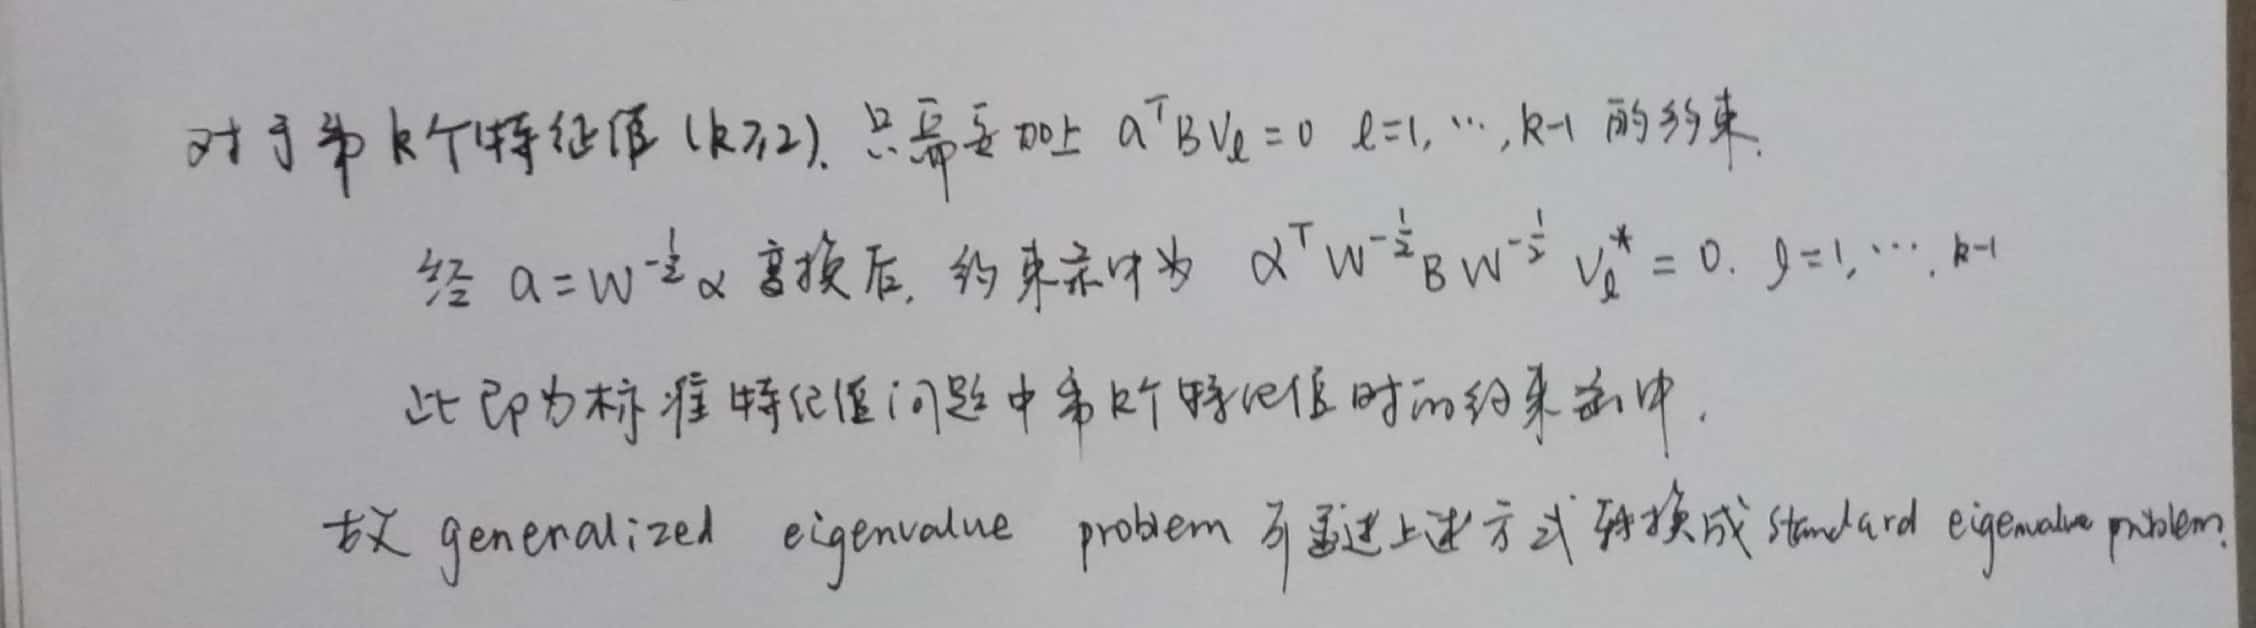 对于第k个特征值(k≥2).只需要加上 a^T B V_ℓ = 0 ℓ=1,⋯,k-1 的约束.
经 a=W^{-1/2}α 变换后,约束条件为 α^T W^{-1/2} B W^{-1/2} V_ℓ^* = 0. ℓ=1,⋯,k-1
此即为标准特征值问题中第k个特征值时的约束条件.
故 generalized eigenvalue problem 可通过上述方式转换成 standard eigenvalue problem.